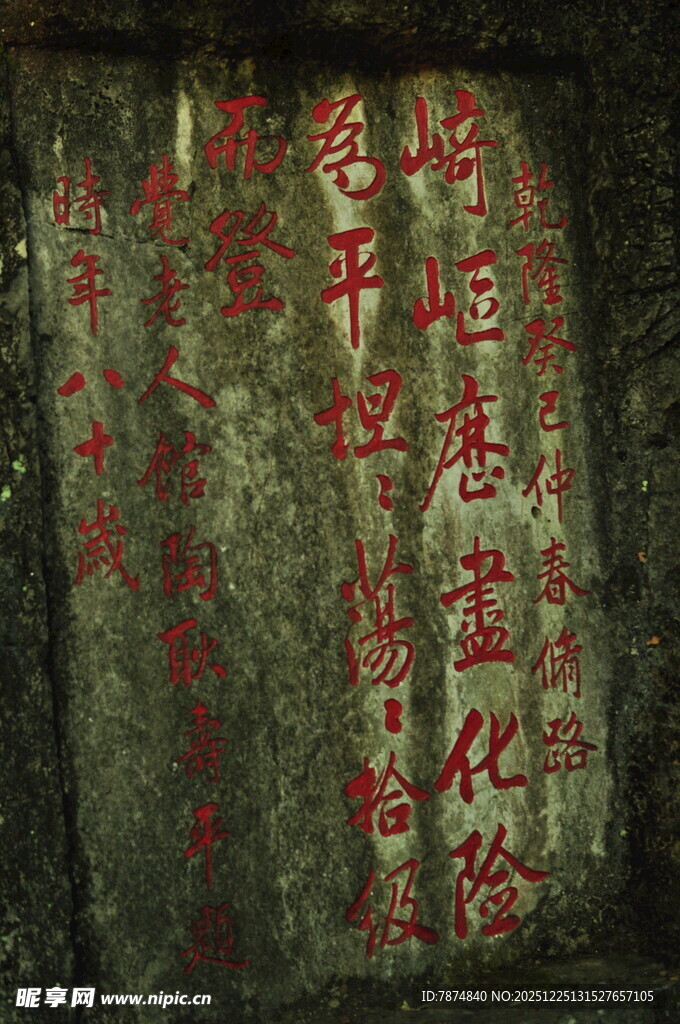 乾隆癸已仲春脩路
﨑嶇歷盡化險
為平坦〻蕩〻拾級
而登
覺老人館陶耿壽平題
時年八十歲
昵享网 www.nipic.cn
ID:7874840 NO:20251225131527657105